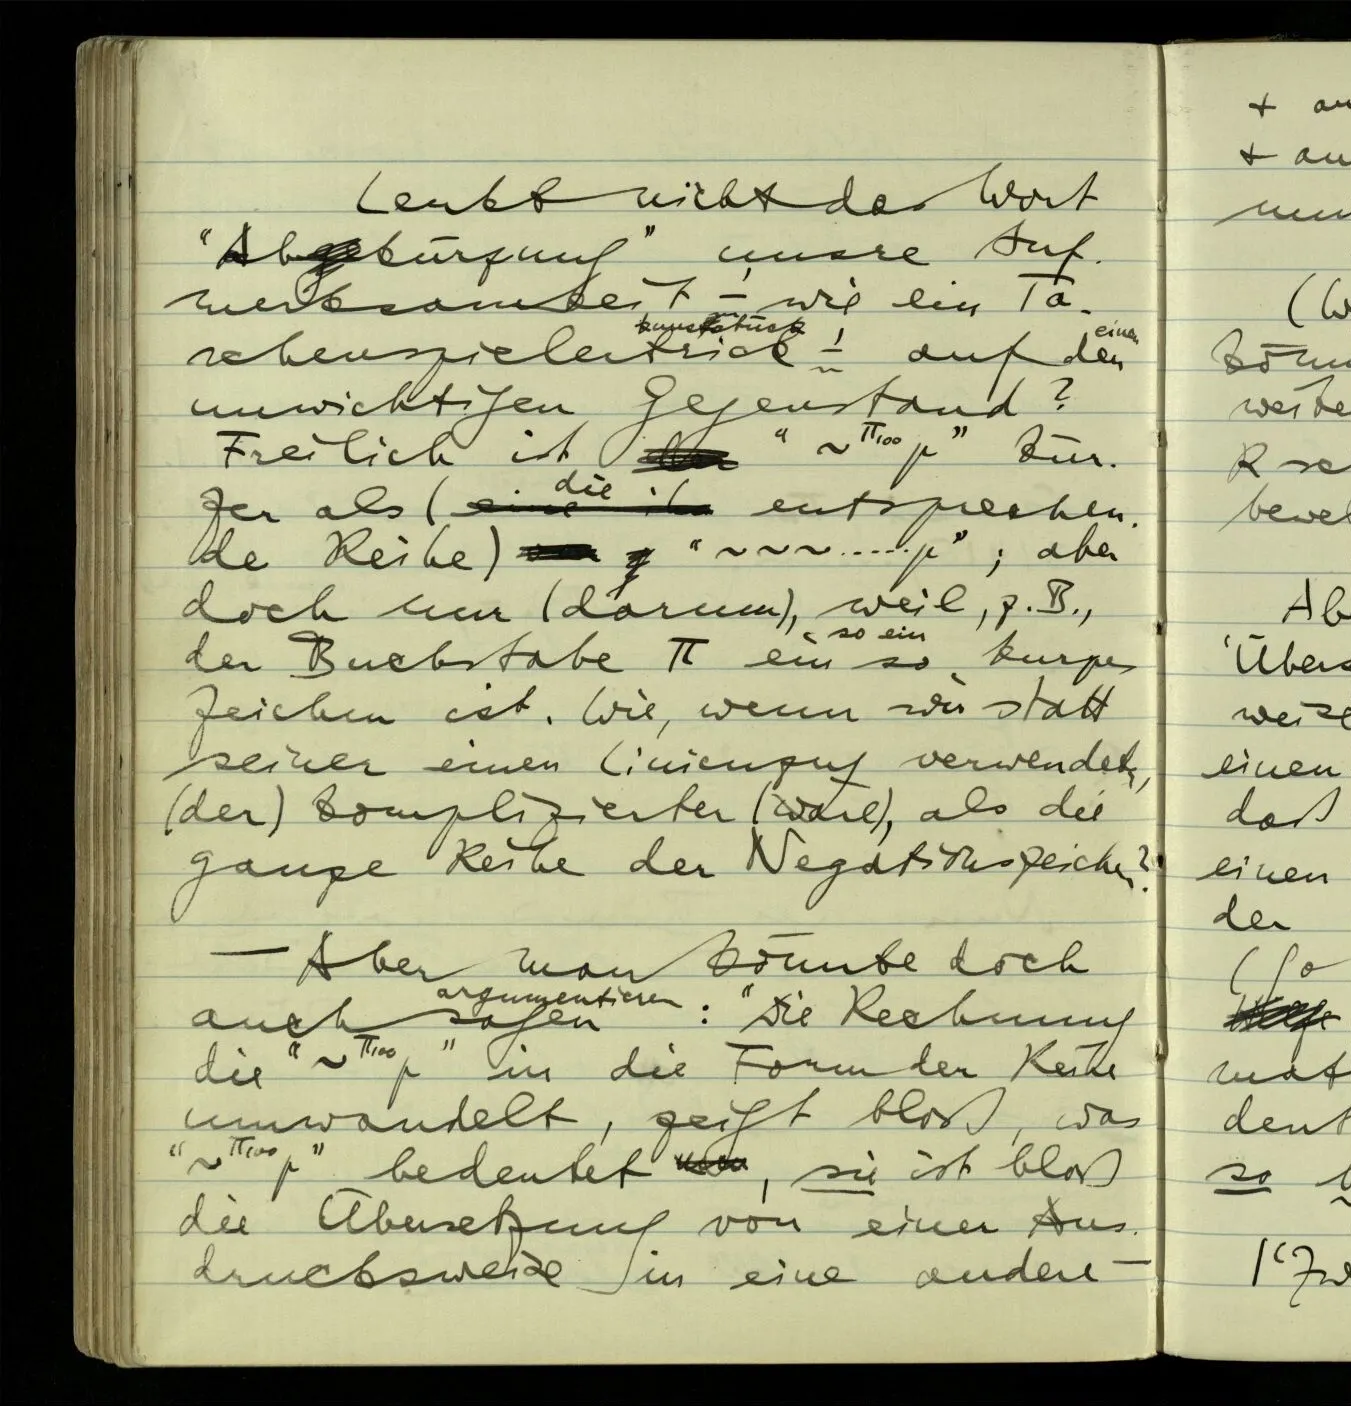 Lenkt nicht das Wort
"Abkürzung" unsre Auf-
merksamkeit – wie ein Ta-
schenspielertrick kunststück – auf den einen
unwichtigen Gegenstand?
Freilich ist "~π100p" kür-
zer als (die entsprechen-
de Reihe) "~~~.....p"; aber
doch nur (darum), weil, z.B.,
der Buchstabe π ein so so ein kurzes
Zeichen ist. Wie, wenn wir statt
seiner einen Linienzug verwendet,
(der) komplizierter (wäre), als die
ganze Reihe der Negationszeichen?
— Aber man könnte doch
auch sagen argumentieren: "Die Rechnung
die "~π100p" in die Form der Reihe
umwandelt, zeigt bloß, was
"~π100p" bedeutet, sie ist bloß
die Übersetzung von einer Aus-
drucksweise in eine andere –
+
+ an
(W
weite
R
Ab
'Übers
weise
einen
daß
einen
der
(
mat
so
"Zw